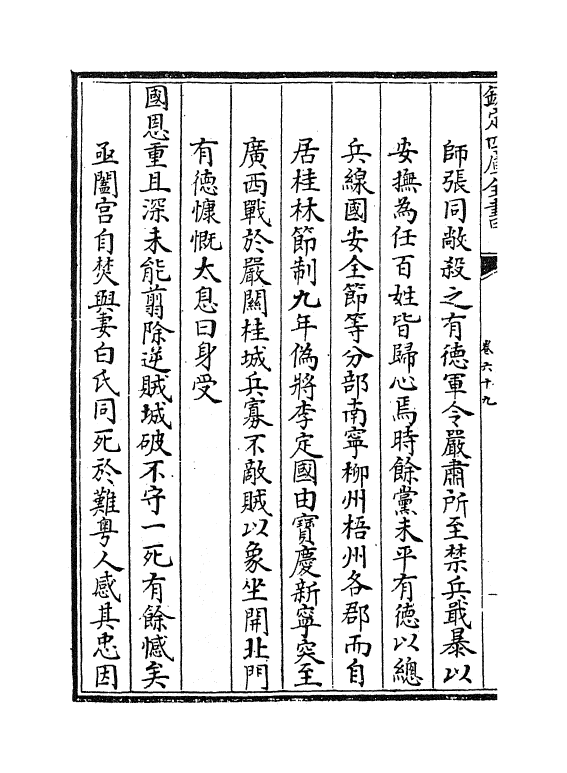 欽定四庫全書
卷六十九
師張同敞殺之有德軍令嚴肅所至禁兵戢暴以
安撫為任百姓皆歸心焉時餘黨未平有德以總
兵線國安全節等分部南寧柳州梧州各郡而自
居桂林節制九年偽將李定國由寶慶新寧突至
廣西戰於嚴關桂城兵寡不敵賊以象坐開北門
有德慷慨太息曰身受
國恩重且深未能翦除逆賊城破不守一死有餘憾矣
亟闔宫自焚與妻白氏同死於難粵人感其忠因